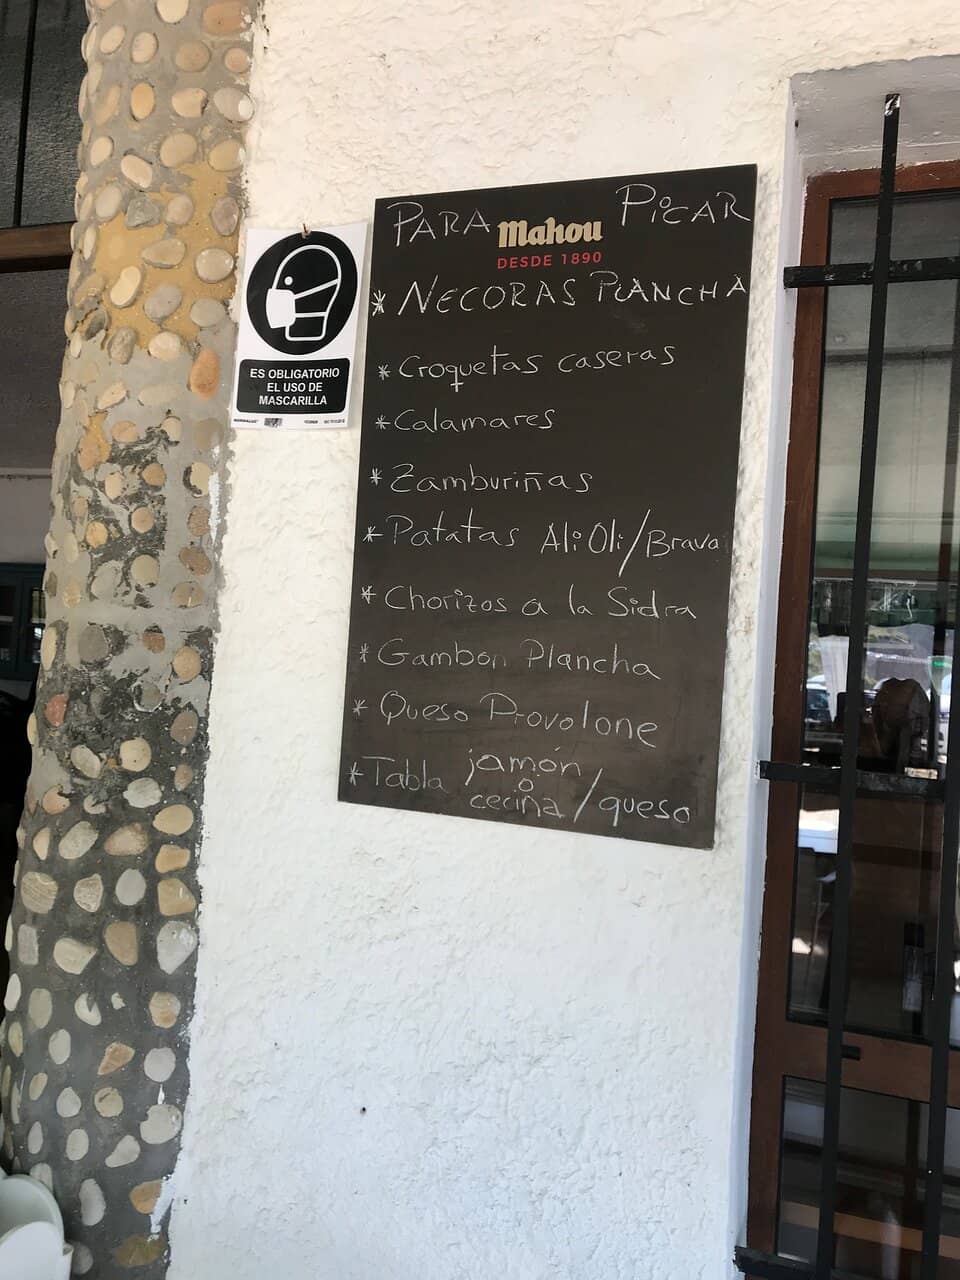 PARA PICAR
Mahou
DESDE 1890
* NECORAS PLANCHA
* Croquetas caseras
* Calamares
* Zamburiñas
* Patatas AliOli/Brava
* Chorizos a la Sidra
* Gambon Plancha
* Queso Provolone
* Tabla jamón o cecina/queso
ES OBLIGATORIO
EL USO DE
MASCARILLA